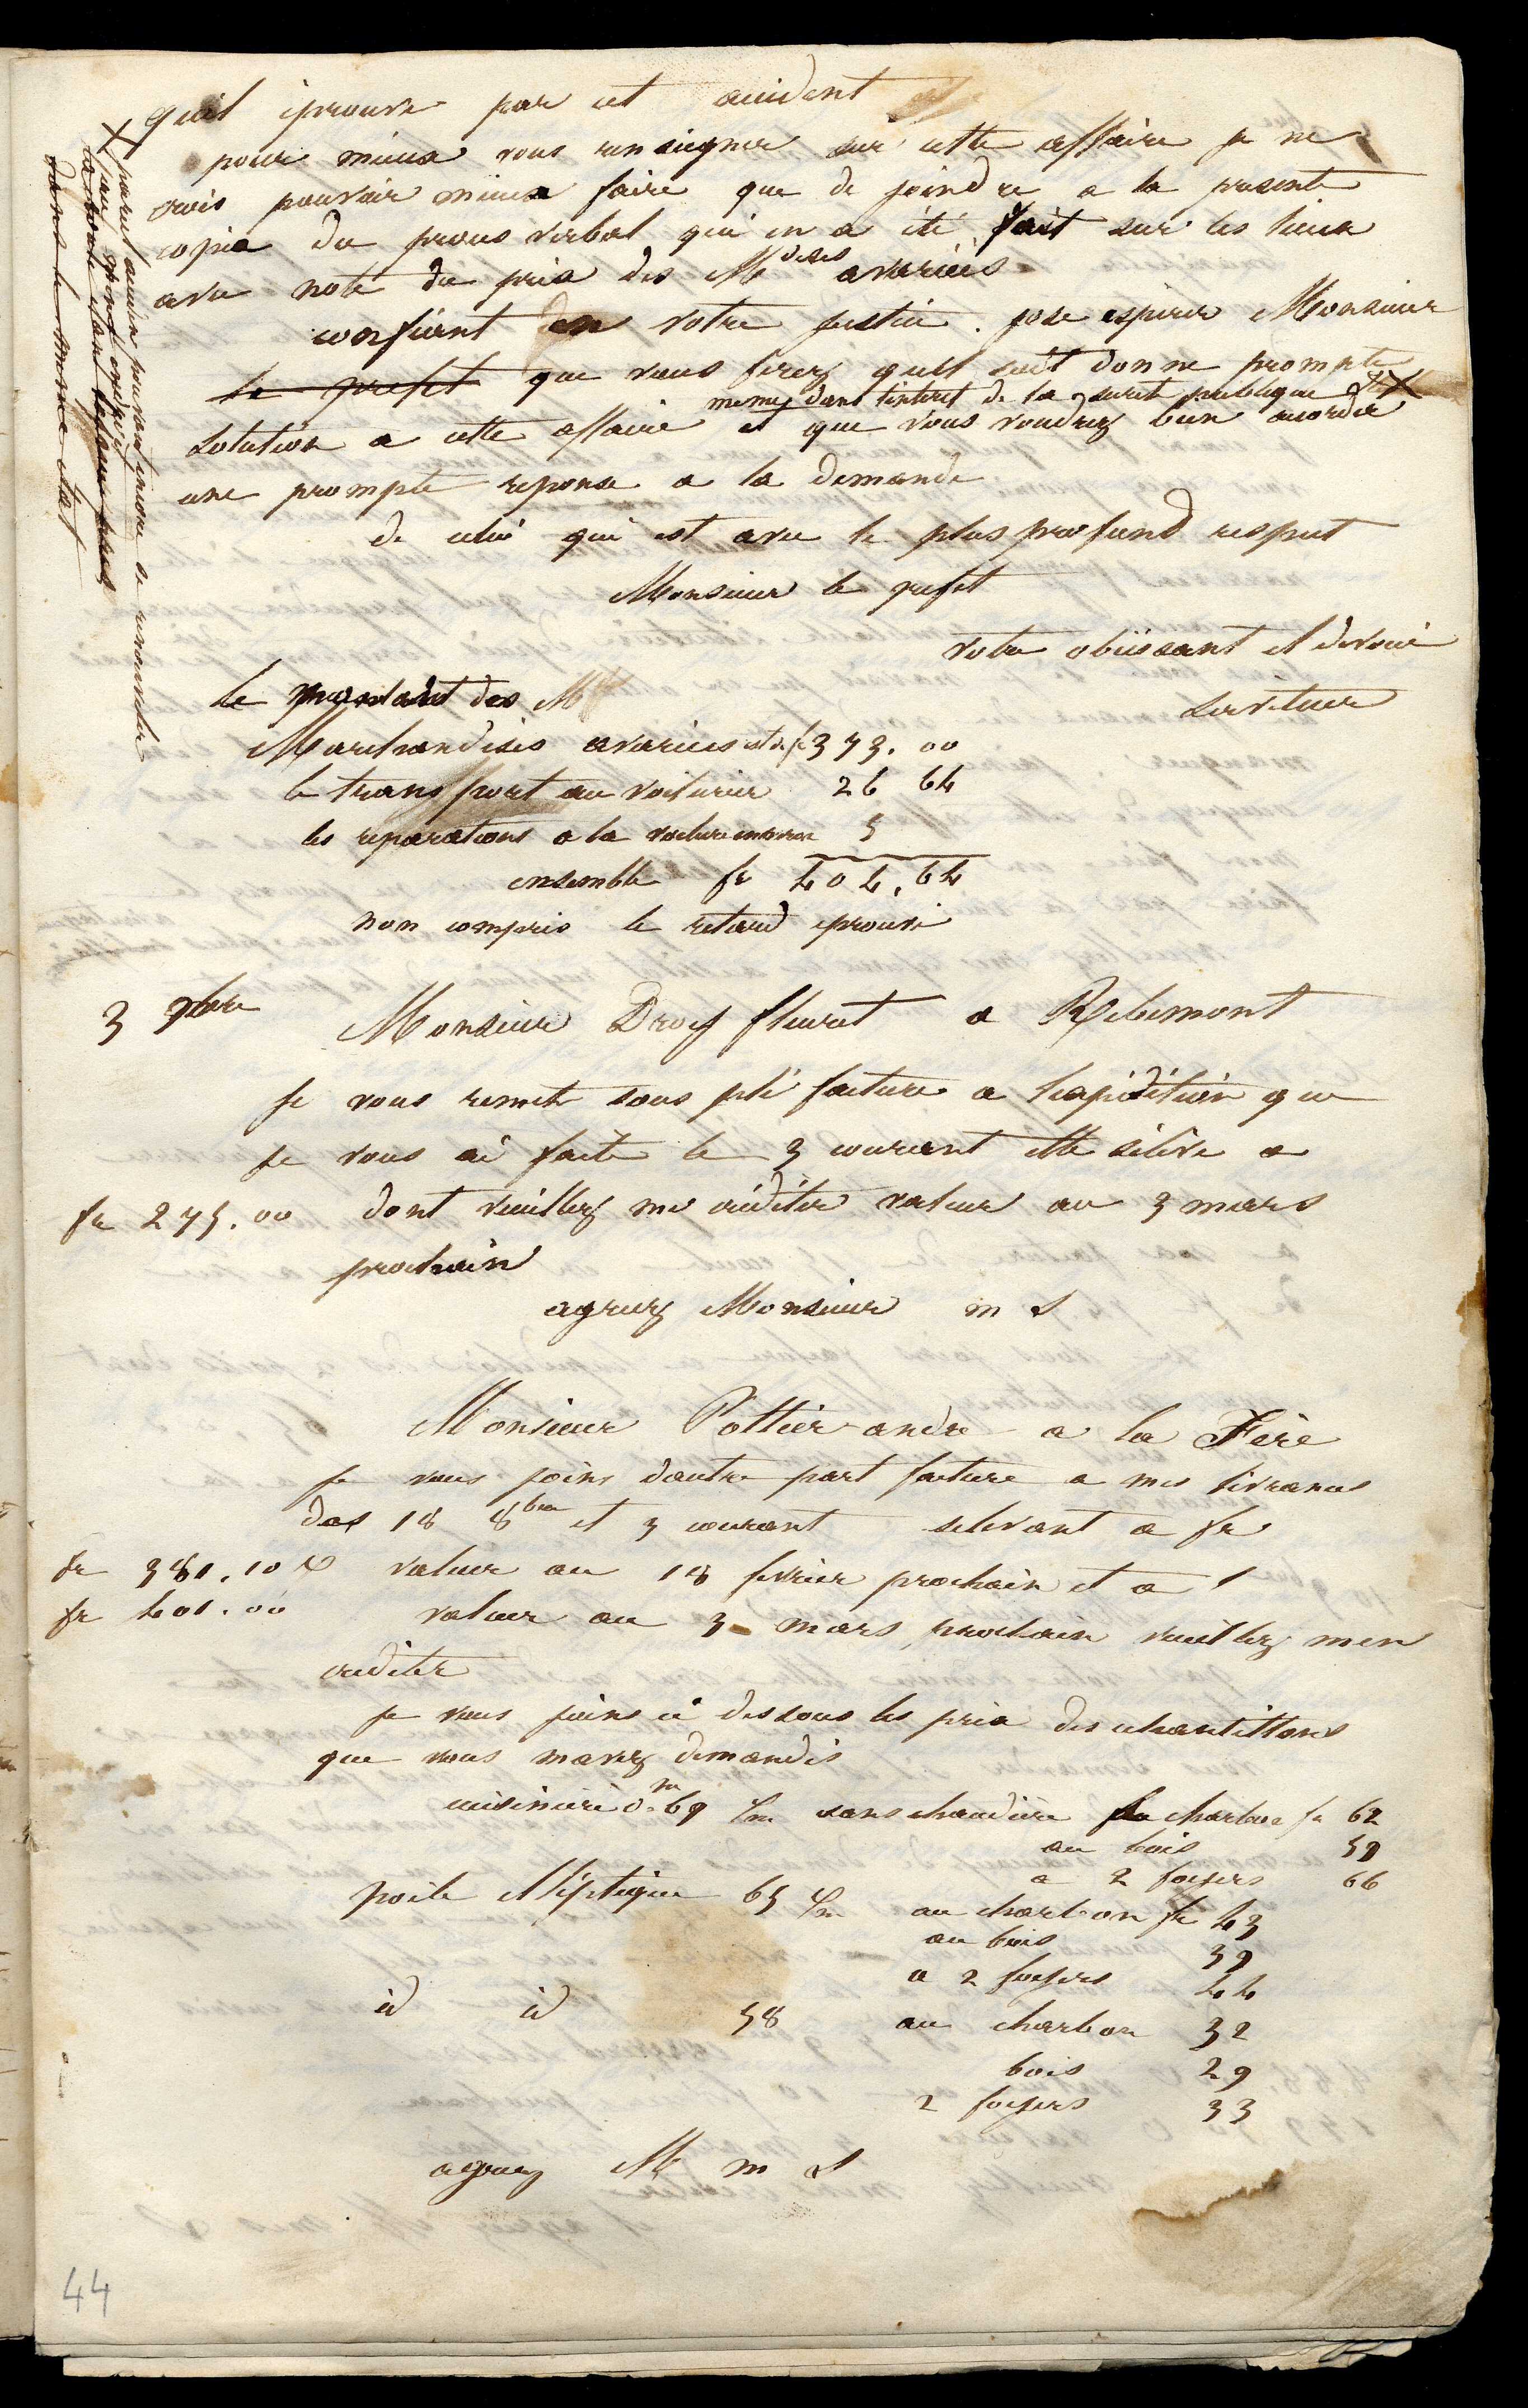 qu'il éprouve par cet accident
pour mieux vous renseigner sur cette affaire je ne
crois pouvoir mieux faire que de joindre a la presente
copie du proces verbal qui en a été fait sur les lieux
avec note du prix des Mdises avariées
confiant en votre justice. jose espérer Monsieur
le prefet que vous ferez quil soit donne prompte
meme dans linteret de la sureté publique X
solution a cette affaire et que vous voudrez bien accorder
une prompte reponse a la demande
de celui qui est avec le plus profond respect
Monsieur le prefet
votre obéissant et devoué
serviteur
X pareil accident pouvant encore se renouveler
dans le meme etat
le montant des M
Marchandises avariees est de fr 373.00
le transport au voiturier 26 64
les reparations a la voiture 5
ensemble fr 404.64
non compris le retard eprouvé
3 9bre
Monsieur Droy fleuret a Ribemont
je vous remets sous pli facture a lexpédition que
je vous ai faite le 3 courant elle sélève a
fr 275.00 dont veuillez me créditer valeur au 3 mars
prochain
agreez Monsieur m S
Monsieur Pottier-andre a la Fère
je vous joins dautre part facture a mes livrances
des 18 8bre et 3 courant selevant a fr
fr 381.10 valeur au 18 fevrier prochain et a
fr 401.00 valeur au 3 mars prochain veuillez men
crediter
je vous joins ci dessous les prix des echantillons
que vous mavez demandés
cuisinière de 69 c/m sans chaudière charbon fr 62
au bois 59
a 2 foyers 66
poele elleptique 65 c/m au charbon fr 43
au bois 39
a 2 foyers 44
id id 58 au charbon 32
bois 29
2 foyers 33
agreez M m S
44